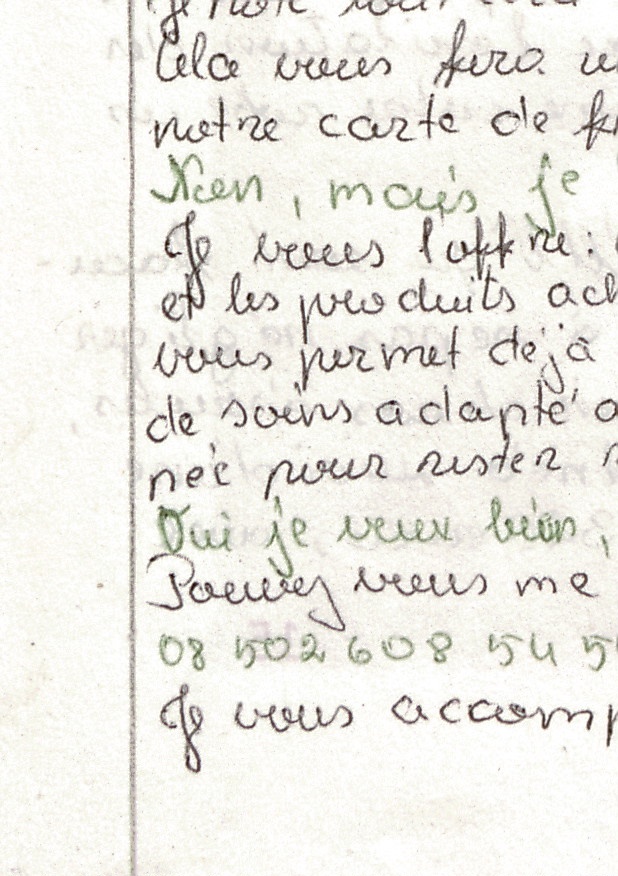 Je note
Cela vous fera
notre carte de
Non, mais je
Je vous l'offre.
et les produits
vous permet déjà
de soins adapté
née pour rester
Oui je veux bien,
Pouvez vous me
08 502 608 54
Je vous